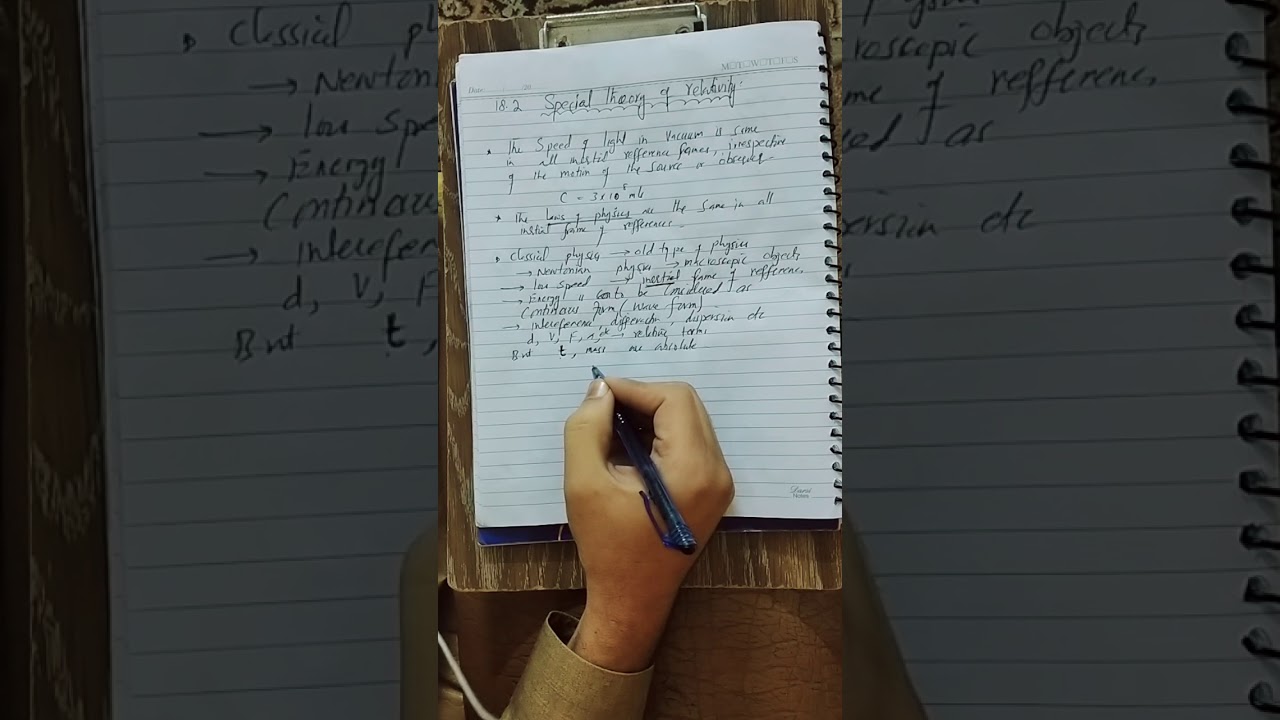 MOTOWOTOFOS
Date:
18.2 Special theory of relativity:
* The Speed of light in Vacuum is same
in all inertial refference frames, irrespective
of the motion of the source or observer.
C = 3x10⁸ m/s
* The laws of physics are the same in all
inertial frame of refference.
Classical physics → old type of physics
→ Newtonian physics → macroscopic objects
→ low speed → inertial frame of refference,
→ Energy is to be Considered as
Continuous form (wave form)
→ interference, diffraction, dispersion etc
d, V, F, a, etc → relative terms
But t, mass are absolute
Notes